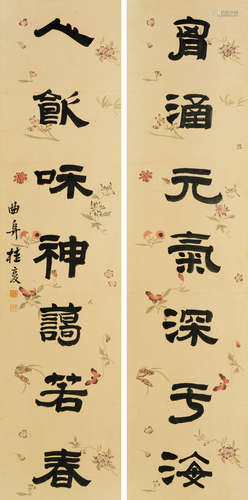 胷涵元氣深于海
人飲咊神藹若春
曲阜桂馥